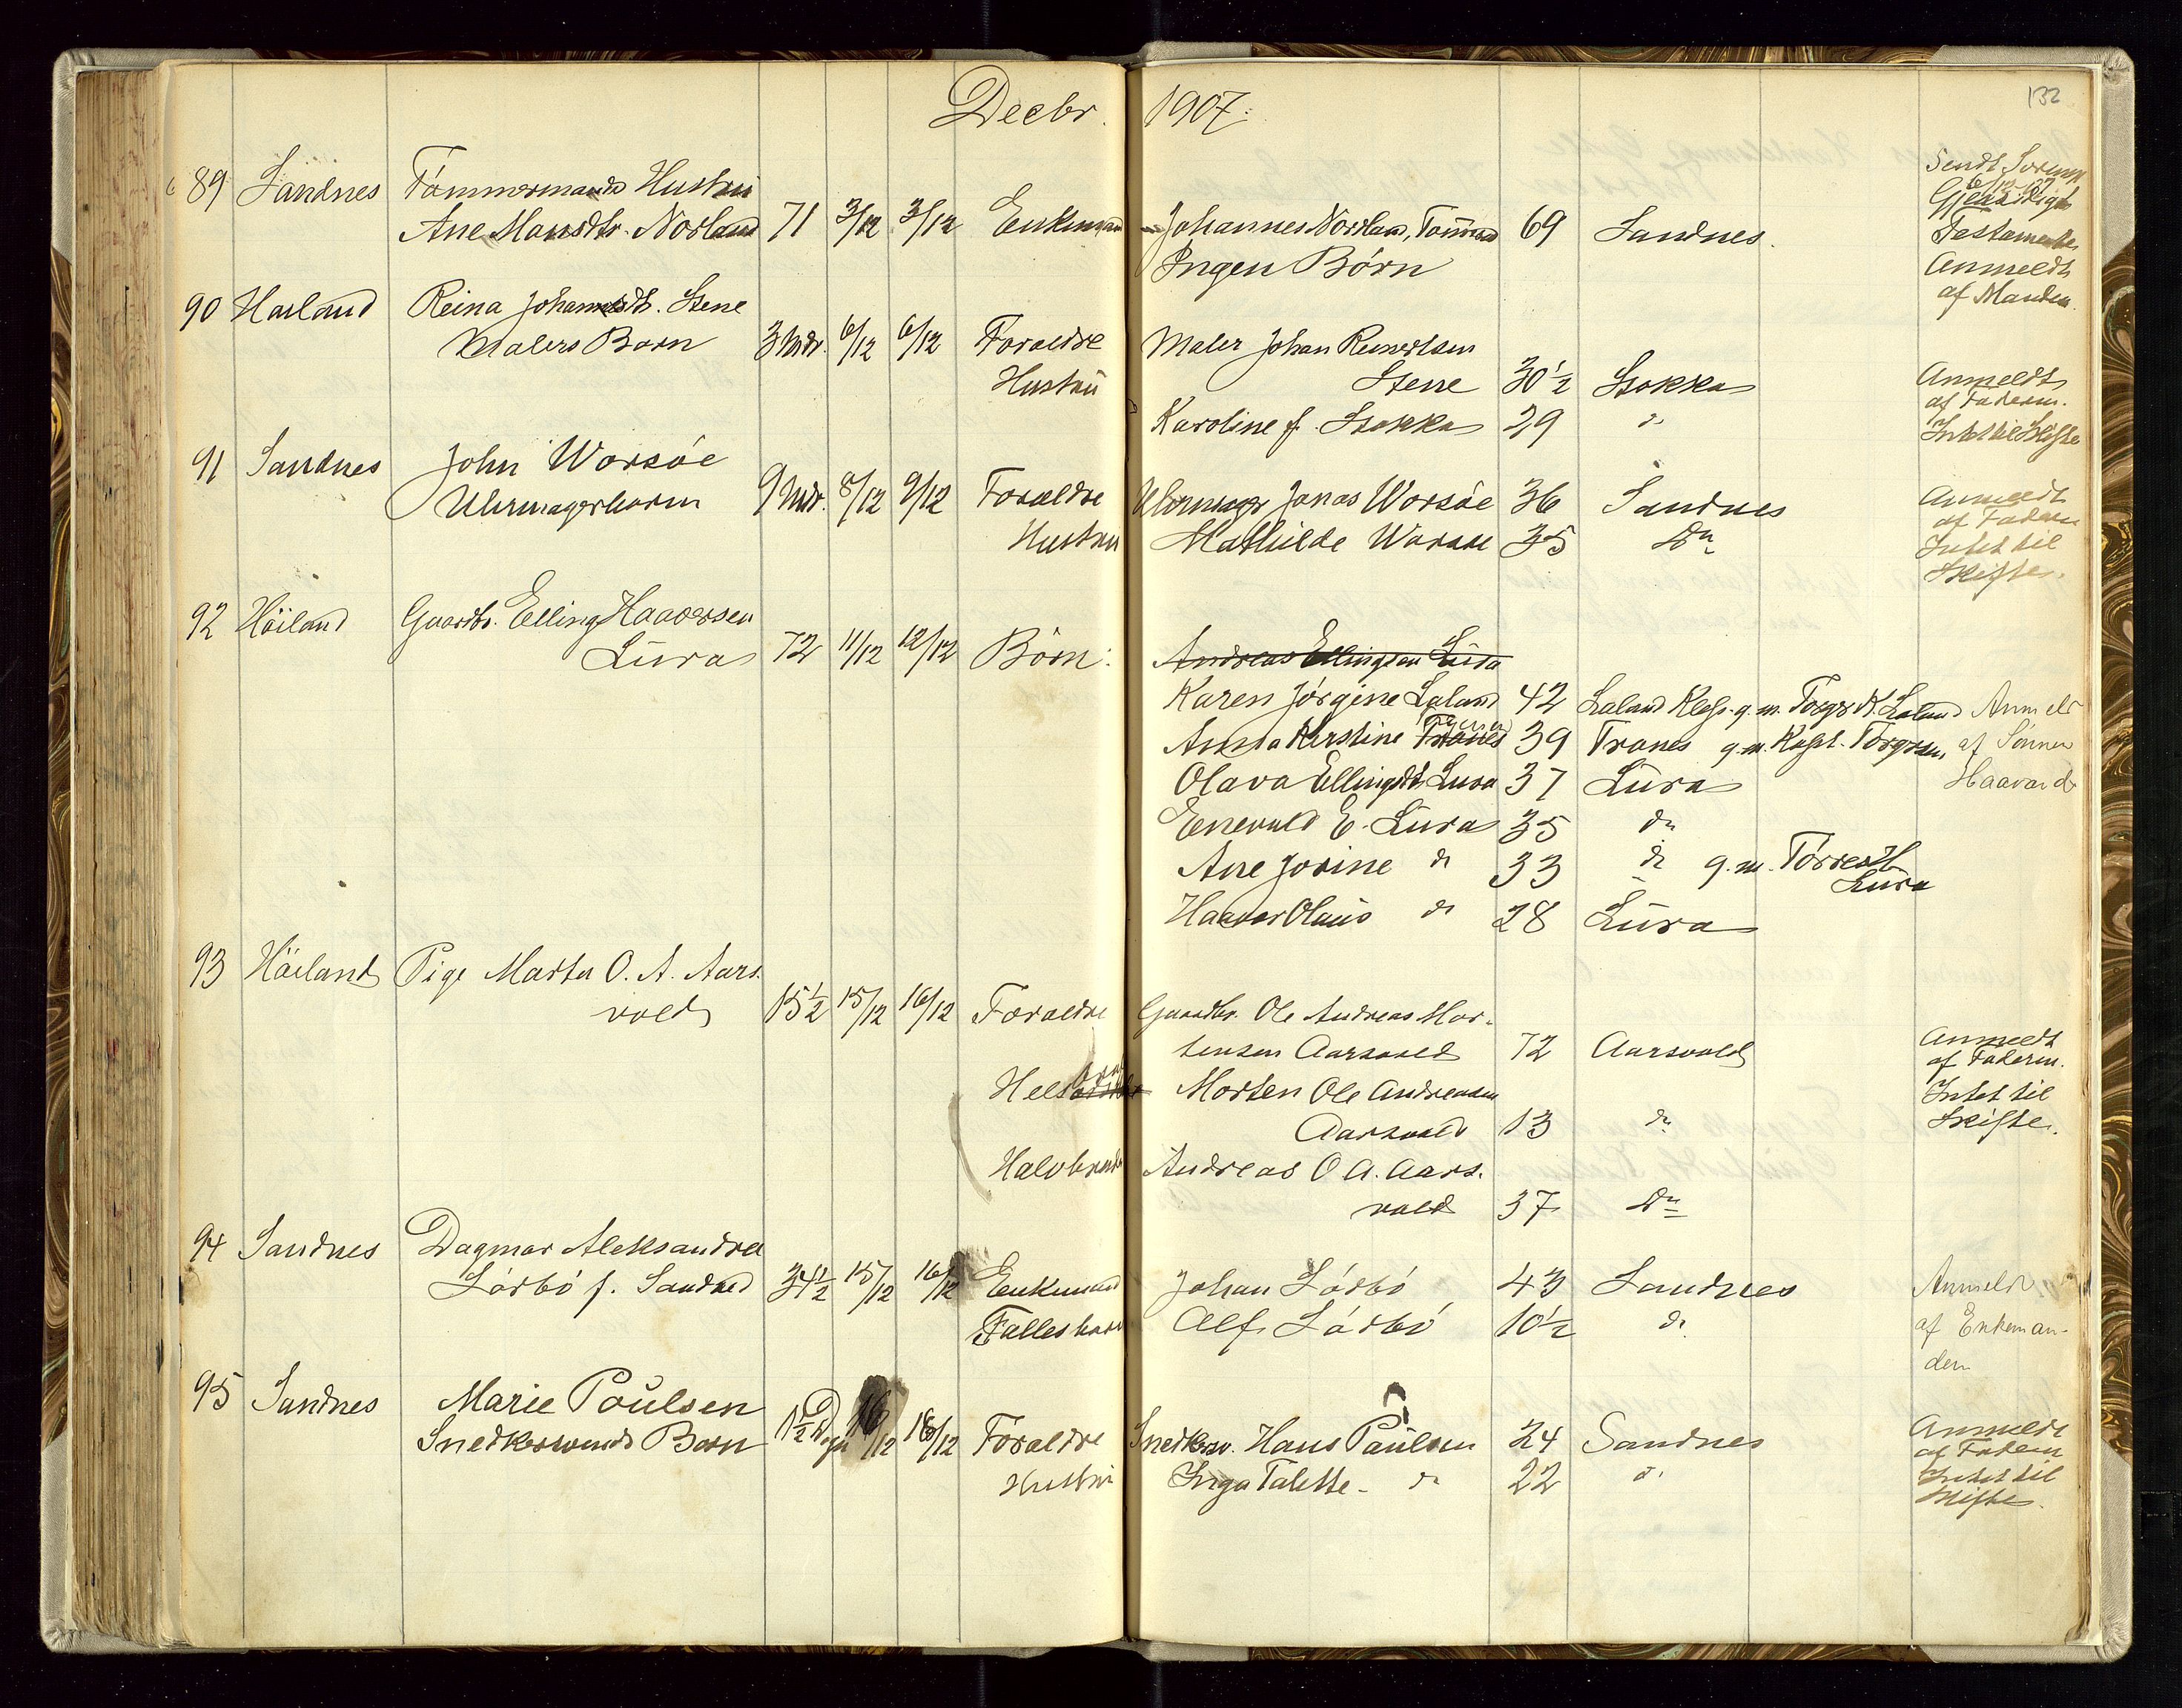 Decbr. 1907.
132
89 Sandnes Tømmermands Hustru
Ane Hansdtr. Norland 71 3/12 3/12 Enkemand Johannes Norland, Tømmermd 69 Sandnes.
Ingen Børn
Sendt Sorenskr
6/12 07
Gjensidigt
Testamente
Anmeldt
af Manden.
90 Høiland Reina Johannesdtr. Stene
Malers Barn 3 Mdr. 6/12 6/12 Forældre Maler Johan Reinertsen
Hustru Stene 30½ Stokka
Karoline f. Stokka 29 do
Anmeldt
af Faderen.
Intet til Skifte
91 Sandnes John Worsøe
Uhrmagerbarn 9 Mdr. 8/12 9/12 Forældre Uhrmager Jonas Worsøe 36 Sandnes
Hustru Mathilde Worsøe 35 Do
Anmeldt
af Faderen
Intet til
Skifte.
92 Høiland Gaardbr. Elling Haaversen
Lura 72 11/12 12/12 Børn:
Andreas Ellingsen Lura
Karen Jørgine Laland 42 Laland Klep. g.m. Torger K. Laland
Anna Kirstine Tranes 39 Tranes g.m. Torgersen,
Olava Ellingsdtr. Lura 37 Lura
Enevald E. Lura 35 do
Ane Jorine do 33 do g.m. Torres H.
Lura
Haavar Olaus do 28 Lura
Anmeldt
af Sønnen
Haavard
93 Høiland Pige Marta O. A. Aars-
vold 15½ 15/12 16/12 Forældre Gaardbr. Ole Andreas Mor-
tensen Aarsvold 72 Aarsvold
Helbror Morten Ole Andreassen
Aarsvold 13 do
Halvbroder Andreas O. A. Aars-
vold 37 Do
Anmeldt
af Faderen.
Intet til
Skifte.
94 Sandnes Dagmar Aleksandra
Lørbø f. Sandved 34½ 15/12 16/12 Enkemand Johan Lørbø 43 Sandnes
Fællesbarn Alf Lørbø 10½ do
Anmeldt
af Enkeman-
den
95 Sandnes Marie Poulsen
Snedkersvends Barn 1½ Døgn 16/12 18/12 Forældre Snedkersv. Hans Paulsen 24 Sandnes
Hustru Inga Talette do 22 do
Anmeldt
af Faderen
Intet til
Skifte.